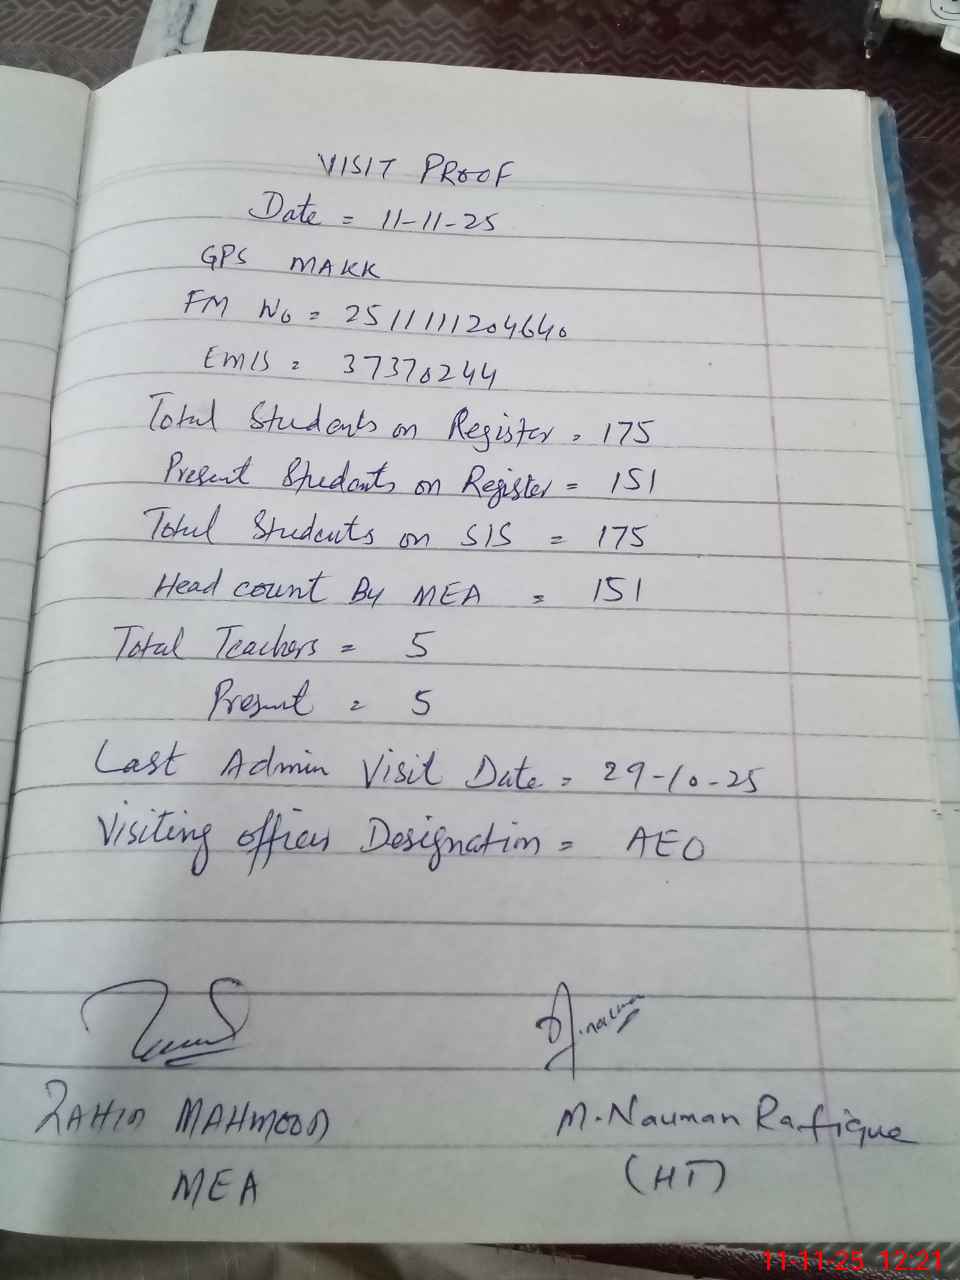 VISIT PROOF
Date = 11-11-25
GPS MAKK
FM No = 2511111204640
EMIS = 37370244
Total Students on Register = 175
Present Students on Register = 151
Total Students on SIS = 175
Head count By MEA = 151
Total Teachers = 5
Present = 5
Last Admin Visit Date = 29-10-25
Visiting officer Designation = AEO
ZAHID MAHMOOD
M. Nauman Rafique
MEA
(HT)
11-11-25 12:21